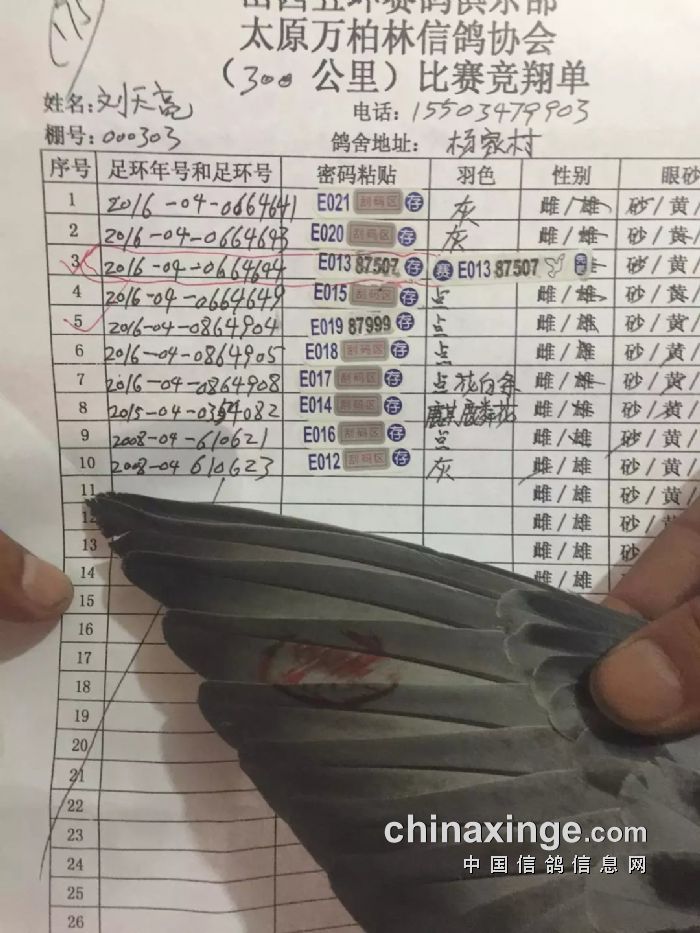 山西五环赛鸽俱乐部
太原万柏林信鸽协会
(300 公里)比赛竞翔单
姓名:刘天亮 电话:15503479903
棚号:000303 鸽舍地址:杨家村
序号 足环年号和足环号 密码粘贴 羽色 性别 眼砂
1 2016-04-0664641 E021 刮码区 存 灰 雌/雄 砂/黄/
2 2016-04-0664643 E020 刮码区 存 灰 雌/雄 砂/黄/
3 2016-04-0664644 E013 87507 存 赛 E013 87507 雄 砂/黄/
4 2016-04-0664649 E015 刮码区 存 点 雌/雄 砂/黄/
5 2016-04-0864904 E019 87999 存 点 雌/雄 砂/黄/
6 2016-04-0864905 E018 刮码区 存 点 雌/雄 砂/黄/
7 2016-04-0864908 E017 刮码区 存 点花白条 雌/雄 砂/黄/
8 2015-04-0354082 E014 刮码区 存 麒麟花 雌/雄 砂/黄/
9 2008-04-610621 E016 刮码区 存 点 雌/雄 砂/黄/
10 2008-04 610623 E012 刮码区 存 灰 雌/雄 砂/黄/
11 雌/雄 砂/黄/
12 雌/雄 砂/黄/
13 雌/雄 砂/
14 雌/雄
15
16
17
18
19
20
21
22
23
24
25
26
chinaxinge.com
中国信鸽信息网